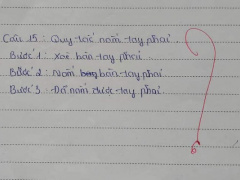 Câu 15: Quy tắc nắm tay phải
Bước 1: Xoè bàn tay phải
Bước 2: Nắm bàn tay phải
Bước 3: tay phải